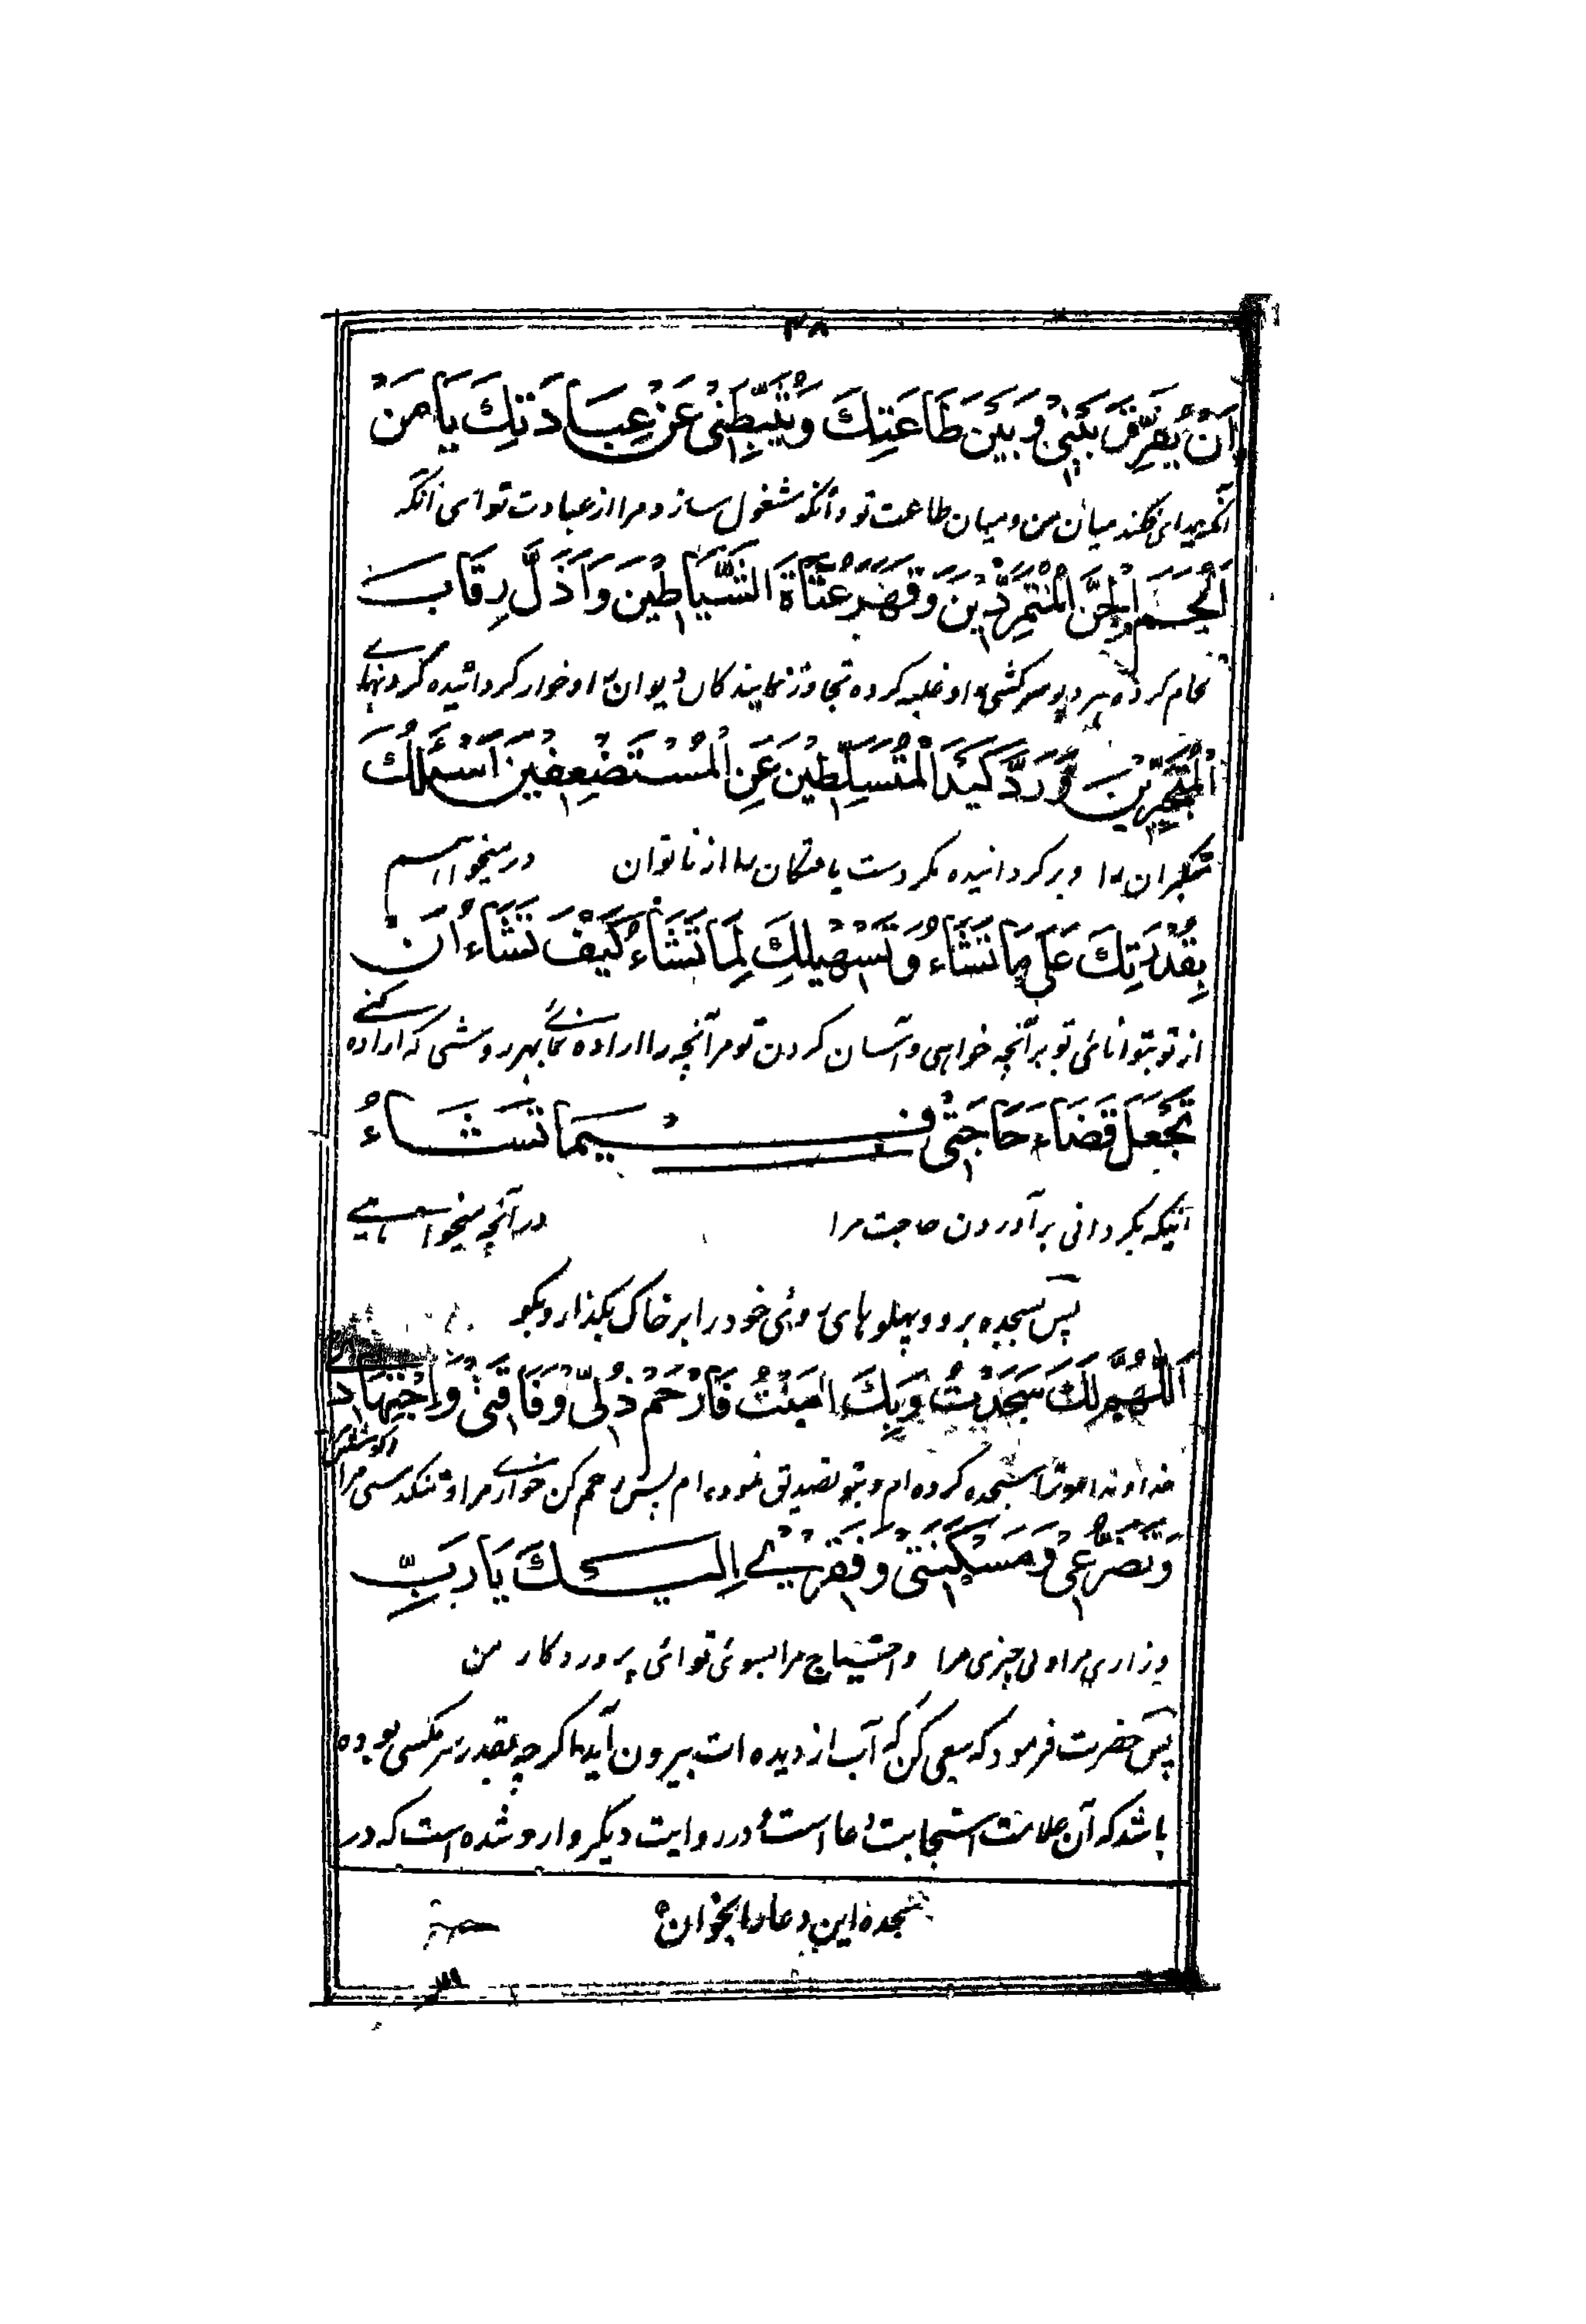 ۴۸
اَنْ يُفَرِّقَ بَيْنِيْ وَ بَيْنَ طَاعَتِكَ وَيُثَبِّطَنِيْ عَنْ عِبَادَتِكَ يَا مَنْ
آنکه جدائی فکند میان من و میان طاعت تو و آنکه مشغول سازد مرا از عبادت تو ای آنکه
اَلْجَمَ الْجِنَّ الْمُتَمَرِّدِيْنَ وَ قَهَرَ عُتَاةَ الشَّيَاطِيْنَ وَ اَذَلَّ رِقَابَ
لجام کرده هر دیو سرکش را و غلبه کرده تجاوز نمایندگان دیوان را و خوار گردانیده گردنهای
الْمُتَجَبِّرِيْنَ وَ رَدَّ كَيْدَ الْمُتَسَلِّطِيْنَ عَنِ الْمُسْتَضْعِفِيْنَ اَسْئَلُكَ
متکبران را و برگردانیده مکر دست یافتگان را از ناتوان در میخواهم
بِقُدْرَتِكَ عَلٰى مَا تَشَاءُ وَ تَسْهِيْلِكَ لِمَا تَشَاءُ كَيْفَ تَشَاءُ اَنْ
از تو بتوانائی تو بر آنچه خواهی و آسان کردن تو مر آنچه را اراده نمائی بهر روشی که اراده کنی
تَجْعَلَ قَضَاءَ حَاجَتِيْ فِيْمَا تَشَاءُ
آنیکه بگردانی برآوردن حاجت مرا در آنچه میخواهی
پس بسجده برو و پهلوهای روئی خود را بر خاک بگذار و بگو
اَللّٰهُمَّ لَكَ سَجَدْتُ وَبِكَ اٰمَنْتُ فَارْحَمْ ذُلِّيْ وَ فَاقَتِيْ وَ اجْتِهَادِيْ
خداوندا مر ترا سجده کرده ام و بتو تصدیق نموده ام پس رحم کن خواری مرا و تنگدستی مرا و کوشش
وَ تَضَرُّعِيْ وَ مَسْكَنَتِيْ وَ فَقْرِيْ اِلَيْكَ يَا رَبِّ
و زاری مرا و بی چیزی مرا و احتیاج مرا بسوئی تو ائی پروردگار من
پس حضرت فرمود که سعی کن که آب از دیده ات بیرون آید اگرچه بقدر سر مگسی بوده
باشد که آن علامت استجابت دعا است و در روایت دیگر وارد شده است که در
سجده این دعا را بخوان